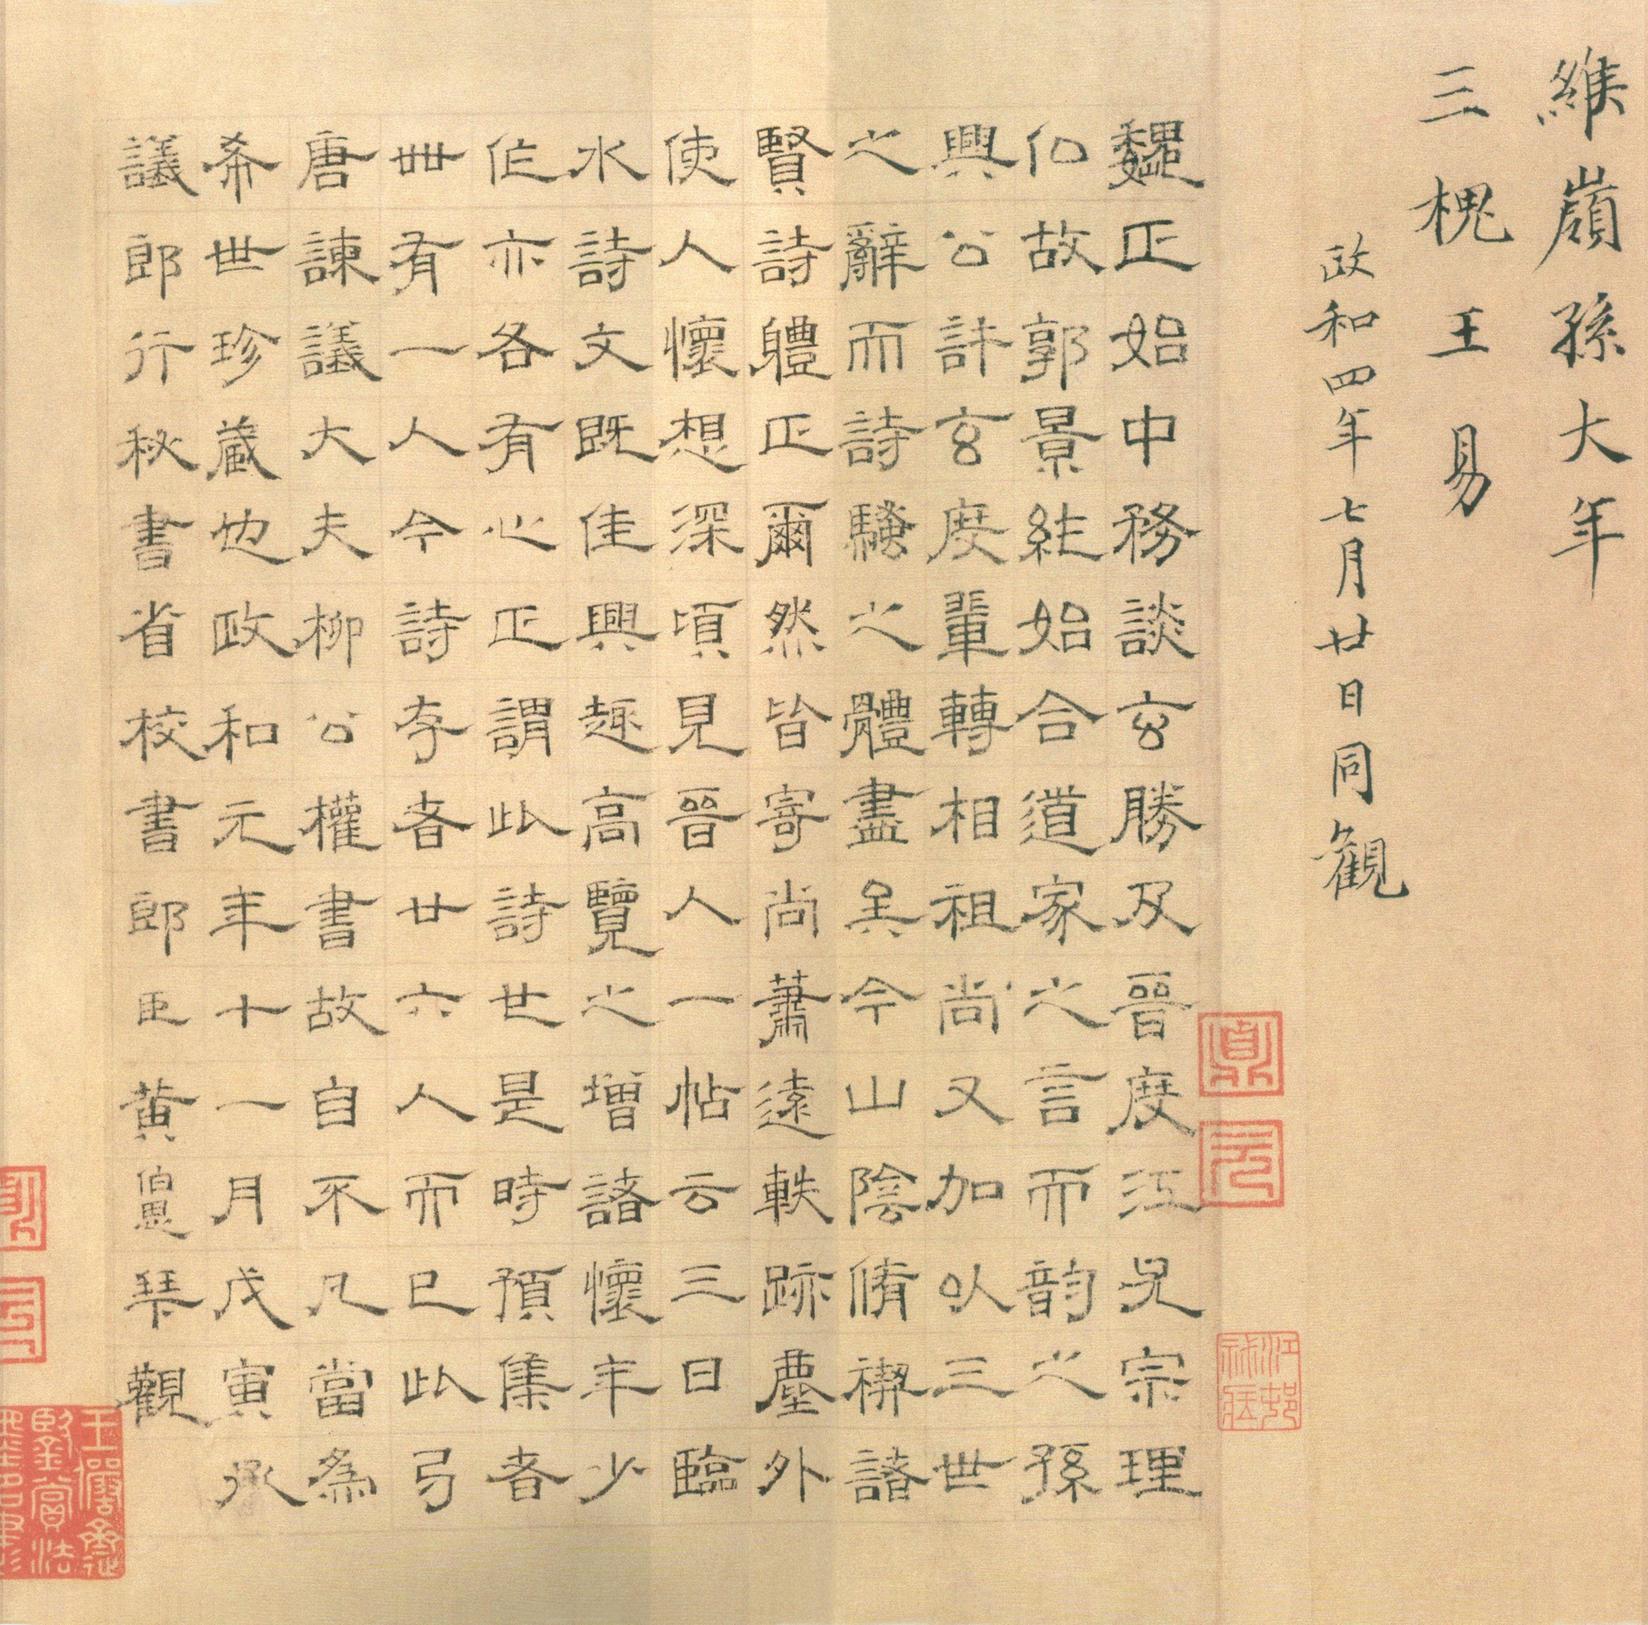 維嶺孫大年
三槐王易
政和四年七月廿日同觀
貞元
魏正始中務談玄勝及晉度江尤宗理
仏故郭景純始合道家之言而韵之孫
興公許玄度輩轉相祖尚又加以三世
之辭而詩騷之體盡矣今山陰脩禊諸
賢詩軆正爾然皆寄尚蕭遠軼跡塵外
使人懷想深頃見晉人一帖云三日臨
水詩文既佳興趣高覽之增諸懷年少
作亦各有心正謂此詩也是時預集者
卌有一人今詩存者廿六人而已此弓
唐諫議大夫柳公權書故自不凡當為
希世珍藏也政和元年十一月戊寅承
議郎行秘書省校書郎臣黃伯思琹觀